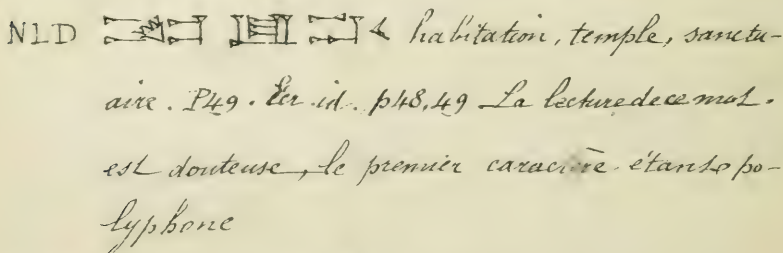 NLD habitation, temple, sanctu-
aire. P49. Ecr id. p48,49 La lecture de ce mot.
est douteuse, le premier caractère étant po-
lyphone